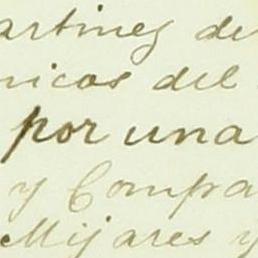 artinez de
nicos del
por una
y Compa
Mijares y